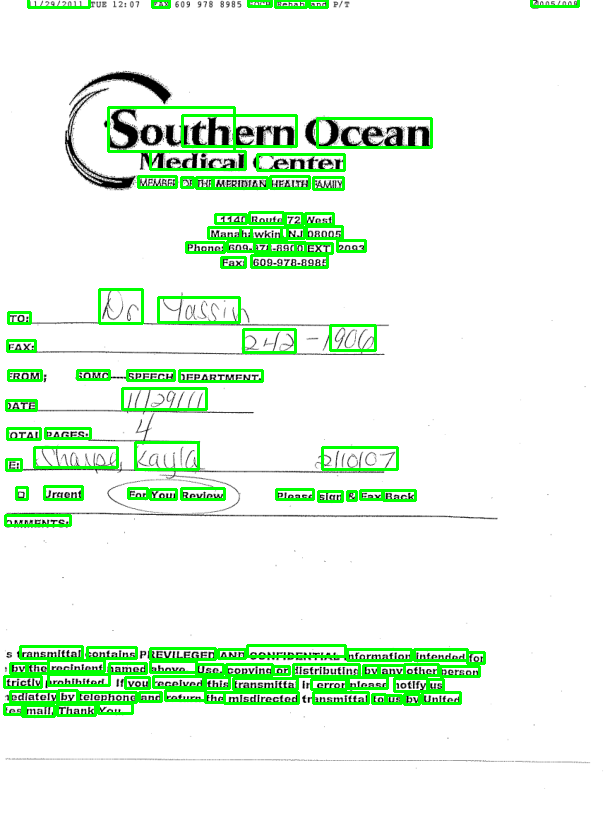 1/29/2011 TUE 12:07 FAX 609 978 8985 SOCH Rehab and P/T 005/008
Southern Ocean
Medical Center
MEMBER OF THE MERIDIAN HEALTH FAMILY
1140 Route 72 West
Manahawkin, NJ 08005
Phone: 609-978-8900 EXT. 2093
Fax: 609-978-8985
TO: Dr Yassin
FAX: 242-1906
FROM: SOMC----SPEECH DEPARTMENT.
DATE 11/29/11
OTAL PAGES: 4
E: Sharpe, Kayla 2/10/07
Urgent For Your Review Please sign & Fax Back
OMMENTS:
s transmittal contains PREVILEGED AND CONFIDENTIAL information intended for
by the recipient named above. Use, copying or distributing by any other person
trictly prohibited. If you received this transmittal in error please notify us
nediately by telephone and return the misdirected transmittal to us by United
tes mail. Thank You.